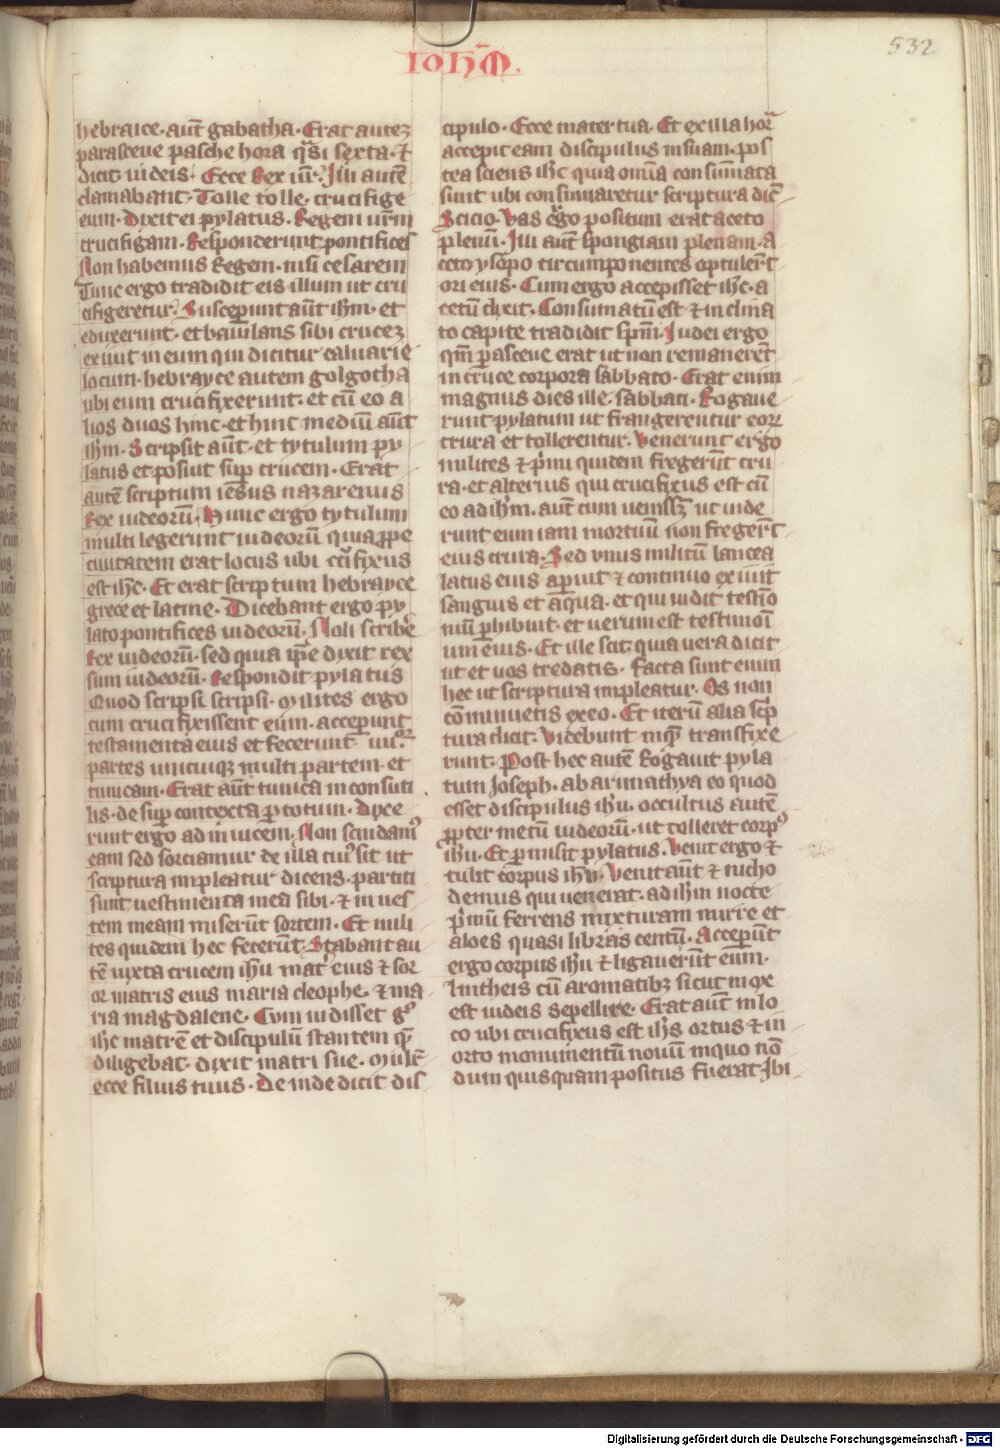 532
IOHM̄.
hebraice · aūt gabatha · Erat autez
parasceue pasche hora q̄si sexta · ⁊
dicit iudeis · Ecce Rex ur̄ · Illi autē
clamabant · Tolle tolle · crucifige
eum · Dixit ei pylatus · Regem ur̄m
crucifigam · Responderunt pontifices
Non habemus Regem · nisi cesarem
Tunc ergo tradidit eis illum ut cru
cifigeretur · Susceperunt aūt ihm̄ · et
eduxerunt · et baiulans sibi crucez
exiuit in eum qui dicitur caluarie
locum · hebrayce autem golgotha
ubi eum crucifixerunt · et cū eo a
lios duos hinc · et hinc mediū aūt
ihm̄ · Scripsit aūt · et tytulum py
latus et posuit sup̄ crucem · Erat
autē scriptum iesus nazarenus
Rex iudeorū · Hunc ergo tytulum
multi legerunt iudeorū quia prope
ciuitatem erat locus ubi cr̄cifixus
est ihc̄ · Et erat scriptum hebrayce
grece et latine · Dicebant ergo py
lato pontifices iudeorū · Noli scribē
Rex iudeorū · sed quia ip̄e dixit rex
sum iudeorū · Respondit pylatus
Quod scripsi scripsi · Milites ergo
cum crucifixissent eum · acceperunt
testamenta eius et fecerunt iiii.or
partes unicuiq; multi partem · et
tunicam · Erat aūt tunica inconsuti
lis · desuper contexta p̄ totum · Dixe
runt ergo ad inuicem · Non scindamꝰ
eam sed sorciamur de illa cuiꝰ sit ut
scriptura impleatur dicens · partiti
sunt uestimenta mea sibi · ⁊ in ues
tem meam miserūt sortem · Et mili
tes quidem hec fecerūt · Stabant au
tē iuxta crucem ihū mat̄ eius ⁊ sor
or matris eius maria cleophe · ⁊ ma
ria magdalene · Cum uidisset gͦ
ihc̄ matrē et discipulū stantem q̄
diligebat · dixit matri sue · Mulr̄
ecce filius tuus · Deinde dicit dis
cipulo · Ecce mater tua · Et ex illa horͣ
accepit eam discipulus in suam · pos
tea sciens ihc̄ quia omīa consūmata
sunt ubi consūmaretur scriptura dic̄
Scicio · Vas ergo positum erat aceto
plenū · Illi aūt spongiam plenam · a
ceto ysopo circumponentes optulert̄
ori eius · Cum ergo accepisset ihc̄ · a
cetū dixit · Consumatū est ⁊ inclina
to capite tradidit spm̄ · Iudei ergo
qm̄ p̄asceue erat ut non remanerēt
in cruce corpora sabbato · Erat enim
magnus dies ille · sabbati · Rogaue
runt pylatum ut frangerentur eoꝝ
crura et tollerentur · Venerunt ergo
milites ⁊ p̄mi quidem fregerūt cru
ra · et alterius qui crucifixus est cū
eo ad ihm̄ · aūt cum uenissz ut uide
runt eum iam mortuū non fregert̄
eius crura · Sed unus militū lancea
latus eius apuit ⁊ continuo exiuit
sanguis et aqua · et qui uidit testīo
niū phibuit · et uerum est testimoī
um eius · Et ille scit · quia uera dicit
ut et uos credatis · Facta sunt enim
hec ut scriptura impleatur · Os non
cōminuetis ex eo · Et iterū alia scp̄
tura dicit · Videbunt inq̄ transfixe
runt · Post hec autē Rogauit pyla
tum Ioseph · ab arimathya eo quod
esset discipulus ihū · occultus autē
ꝓpter metū iudeorū · ut tolleret corpꝰ
ihū · Et pmisit pylatus · Venit ergo ⁊
tulit corpus ihū · Venit aūt ⁊ nicho
demus qui uenerat · ad ihm̄ nocte
p̄mū ferrens mixturam mirre et
aloes quasi libras centū · Accepūt
ergo corpus ihū ⁊ ligauerūt eum ·
lintheis cū aromatibz sicut mox
est iudeis sepellire · Erat aūt in lo
co ubi crucifixus est ihs̄ ortus ⁊ in
orto monumentū nouū in quo nō
dum quisquam positus fuerat Ibi
Digitalisierung gefördert durch die Deutsche Forschungsgemeinschaft - DFG